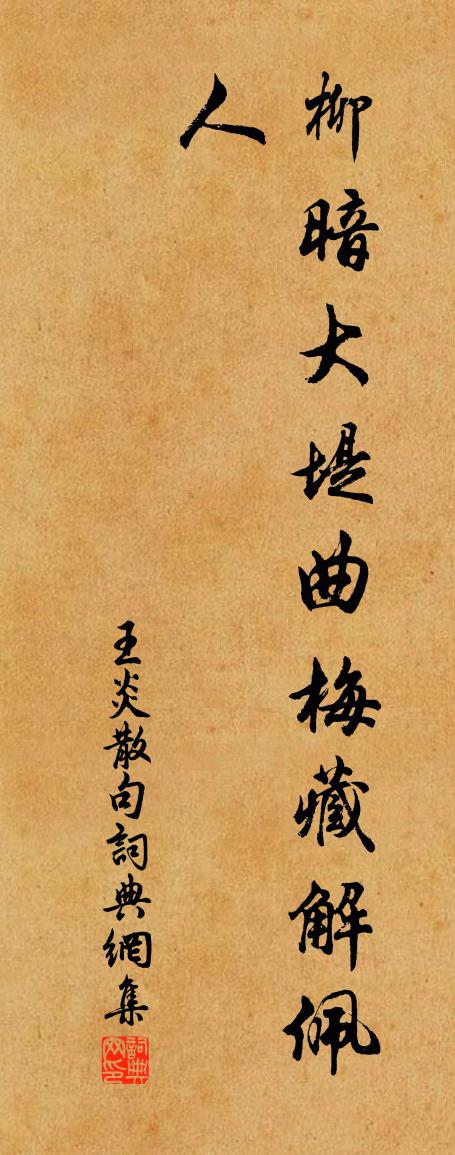 柳暗大堤曲梅藏解佩
人
王炎散句詞典網集
詞典
网印